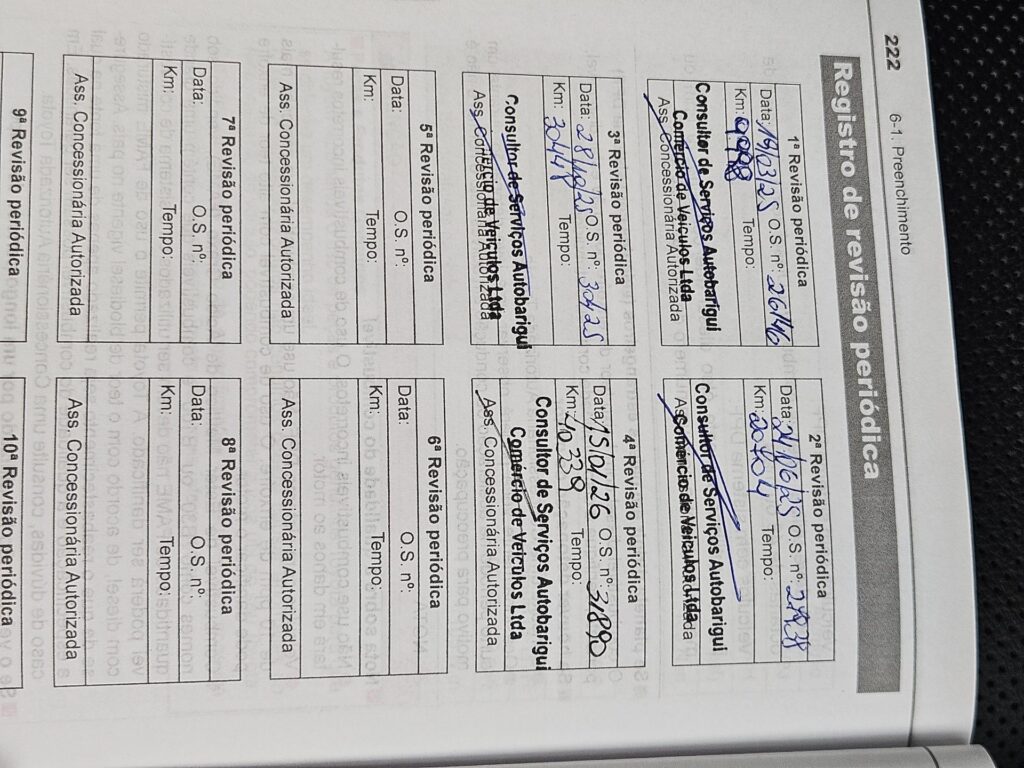 222
6-1. Preenchimento
Registro de revisão periódica
1ª Revisão periódica
Data: 19/03/25 O.S. nº: 26146
Km: 9998 Tempo:
Consultor de Serviços Autobarigui
Comércio de Veículos Ltda
Ass. Concessionária Autorizada
2ª Revisão periódica
Data: 24/06/25 O.S. nº:
Km: 20704 Tempo:
Consultor de Serviços Autobarigui
Comércio de Veículos Ltda
3ª Revisão periódica
Data: O.S. nº: 30425
Km: 30448 Tempo:
Consultor de Serviços Autobarigui
Comércio de Veículos Ltda
Ass. Concessionária Autorizada
4ª Revisão periódica
Data: 15/01/26 O.S. nº: 31890
Km: 40339 Tempo:
Consultor de Serviços Autobarigui
Comércio de Veículos Ltda
Ass. Concessionária Autorizada
5ª Revisão periódica
Data: O.S. nº:
Km: Tempo:
Ass. Concessionária Autorizada
6ª Revisão periódica
Data: O.S. nº:
Km: Tempo:
Ass. Concessionária Autorizada
7ª Revisão periódica
Data: O.S. nº:
Km: Tempo:
Ass. Concessionária Autorizada
8ª Revisão periódica
Data: O.S. nº:
Km: Tempo:
Ass. Concessionária Autorizada
9ª Revisão periódica
10ª Revisão periódica